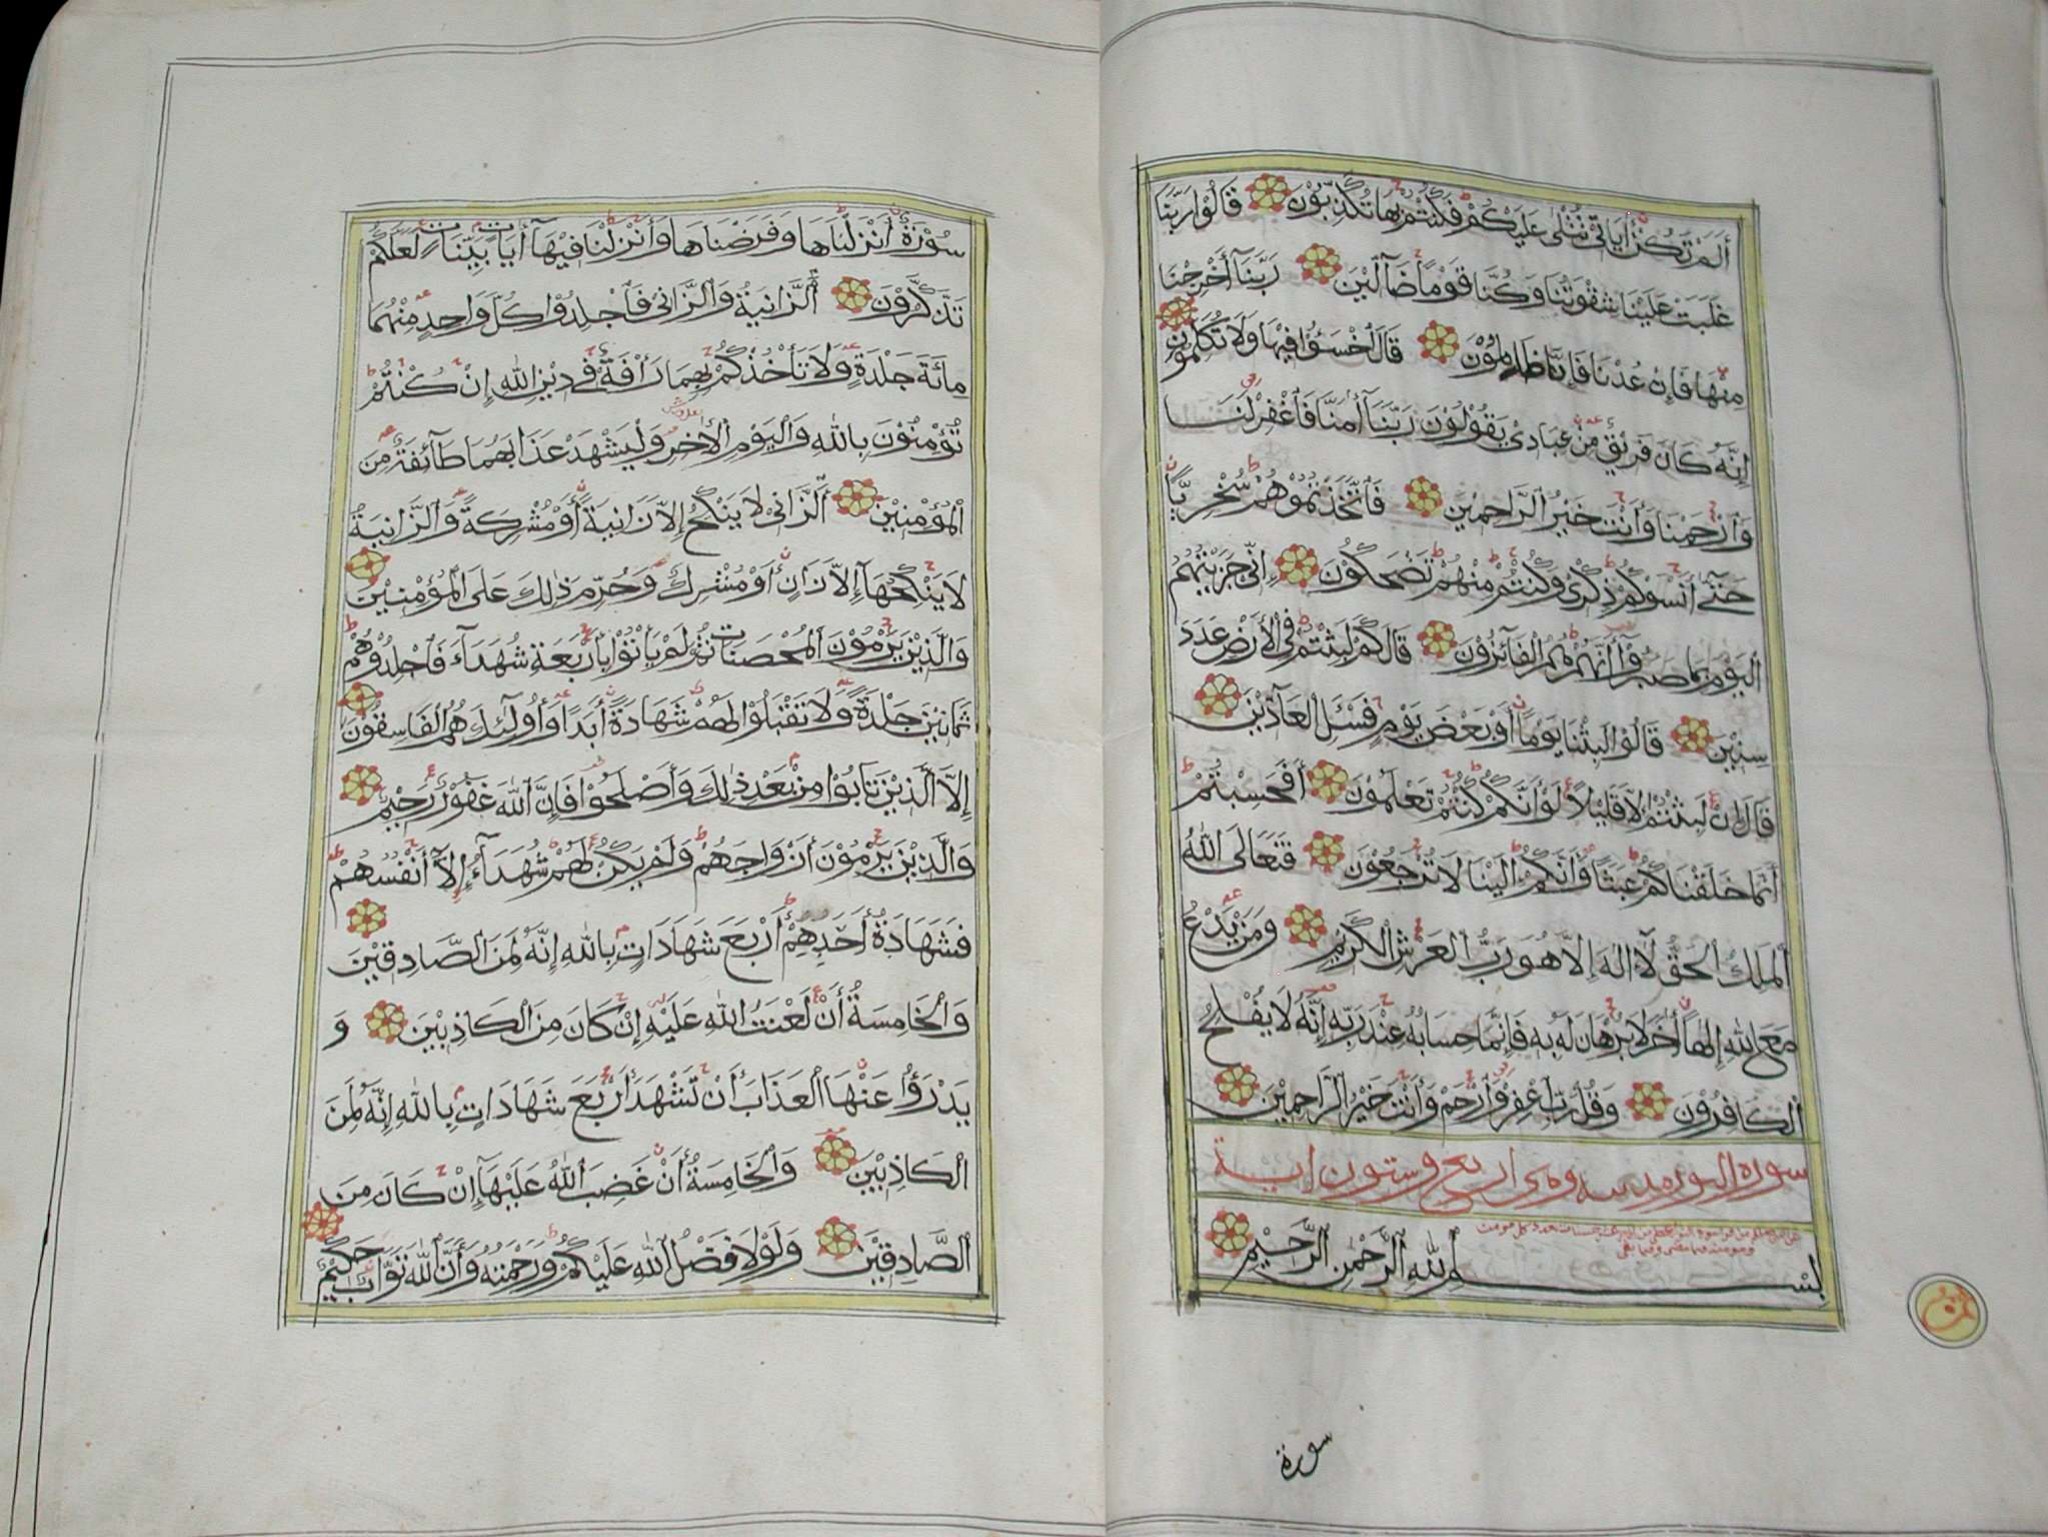 أَلَمْ تَكُنْ أٰيَاتِي تُتْلٰى عَلَيْكُمْ فَكُنْتُمْ بِهَا تُكَذِّبُوْنَ قَالُوْا رَبَّنَا
غَلَبَتْ عَلَيْنَا شِقْوَتُنَا وَكُنَّا قَوْمًا ضَآلِّيْنَ رَبَّنَآ أَخْرِجْنَا
مِنْهَا فَإِنْ عُدْنَا فَإِنَّا ظَالِمُوْنَ قَالَ اخْسَؤُا فِيْهَا وَلَا تُكَلِّمُوْنِ
إِنَّهُ كَانَ فَرِيْقٌ مِنْ عِبَادِيْ يَقُوْلُوْنَ رَبَّنَآ أٰمَنَّا فَاغْفِرْ لَنَا
وَارْحَمْنَا وَأَنْتَ خَيْرُ الرَّاحِمِيْنَ فَاتَّخَذْتُمُوْهُمْ سُخْرِيًّا
حَتّٰى أَنْسَوْكُمْ ذِكْرِيْ وَكُنْتُمْ مِنْهُمْ تَضْحَكُوْنَ إِنِّيْ جَزَيْتُهُمُ
الْيَوْمَ بِمَا صَبَرُوْآ أَنَّهُمْ هُمُ الْفَآئِزُوْنَ قَالَ كَمْ لَبِثْتُمْ فِي الْأَرْضِ عَدَدَ
سِنِيْنَ قَالُوْا لَبِثْنَا يَوْمًا أَوْ بَعْضَ يَوْمٍ فَسْئَلِ الْعَآدِّيْنَ
قَالَ إِنْ لَبِثْتُمْ إِلَّا قَلِيْلًا لَوْ أَنَّكُمْ كُنْتُمْ تَعْلَمُوْنَ أَفَحَسِبْتُمْ
أَنَّمَا خَلَقْنَاكُمْ عَبَثًا وَأَنَّكُمْ إِلَيْنَا لَا تُرْجَعُوْنَ فَتَعَالَى اللّٰهُ
الْمَلِكُ الْحَقُّ لَآ إِلٰهَ إِلَّا هُوَ رَبُّ الْعَرْشِ الْكَرِيْمِ وَمَنْ يَدْعُ
مَعَ اللّٰهِ إِلٰهًا أٰخَرَ لَا بُرْهَانَ لَهُ بِهِ فَإِنَّمَا حِسَابُهُ عِنْدَ رَبِّهِ إِنَّهُ لَا يُفْلِحُ
الْكَافِرُوْنَ وَقُلْ رَبِّ اغْفِرْ وَارْحَمْ وَأَنْتَ خَيْرُ الرَّاحِمِيْنَ
سورة النور مدنية وهي اربع وستون اية
بِسْمِ اللّٰهِ الرَّحْمٰنِ الرَّحِيْمِ
سورة
سُوْرَةٌ أَنْزَلْنَاهَا وَفَرَضْنَاهَا وَأَنْزَلْنَا فِيْهَآ أٰيَاتٍ بَيِّنَاتٍ لَعَلَّكُمْ
تَذَكَّرُوْنَ اَلزَّانِيَةُ وَالزَّانِيْ فَاجْلِدُوْا كُلَّ وَاحِدٍ مِنْهُمَا
مِائَةَ جَلْدَةٍ وَلَا تَأْخُذْكُمْ بِهِمَا رَأْفَةٌ فِيْ دِيْنِ اللّٰهِ إِنْ كُنْتُمْ
تُؤْمِنُوْنَ بِاللّٰهِ وَالْيَوْمِ الْأٰخِرِ وَلْيَشْهَدْ عَذَابَهُمَا طَآئِفَةٌ مِنَ
الْمُؤْمِنِيْنَ اَلزَّانِيْ لَا يَنْكِحُ إِلَّا زَانِيَةً أَوْ مُشْرِكَةً وَالزَّانِيَةُ
لَا يَنْكِحُهَآ إِلَّا زَانٍ أَوْ مُشْرِكٌ وَحُرِّمَ ذٰلِكَ عَلَى الْمُؤْمِنِيْنَ
وَالَّذِيْنَ يَرْمُوْنَ الْمُحْصَنَاتِ ثُمَّ لَمْ يَأْتُوْا بِأَرْبَعَةِ شُهَدَآءَ فَاجْلِدُوْهُمْ
ثَمَانِيْنَ جَلْدَةً وَلَا تَقْبَلُوْا لَهُمْ شَهَادَةً أَبَدًا وَأُولٰٓئِكَ هُمُ الْفَاسِقُوْنَ
إِلَّا الَّذِيْنَ تَابُوْا مِنْ بَعْدِ ذٰلِكَ وَأَصْلَحُوْا فَإِنَّ اللّٰهَ غَفُوْرٌ رَحِيْمٌ
وَالَّذِيْنَ يَرْمُوْنَ أَزْوَاجَهُمْ وَلَمْ يَكُنْ لَهُمْ شُهَدَآءُ إِلَّآ أَنْفُسُهُمْ
فَشَهَادَةُ أَحَدِهِمْ أَرْبَعَ شَهَادَاتٍ بِاللّٰهِ إِنَّهُ لَمِنَ الصَّادِقِيْنَ
وَالْخَامِسَةُ أَنْ لَعْنَتُ اللّٰهِ عَلَيْهِ إِنْ كَانَ مِنَ الْكَاذِبِيْنَ وَ
يَدْرَؤُا عَنْهَا الْعَذَابَ أَنْ تَشْهَدَ أَرْبَعَ شَهَادَاتٍ بِاللّٰهِ إِنَّهُ لَمِنَ
الْكَاذِبِيْنَ وَالْخَامِسَةُ أَنْ غَضِبَ اللّٰهُ عَلَيْهَآ إِنْ كَانَ مِنَ
الصَّادِقِيْنَ وَلَوْلَا فَضْلُ اللّٰهِ عَلَيْكُمْ وَرَحْمَتُهُ وَأَنَّ اللّٰهَ تَوَّابٌ حَكِيْمٌ